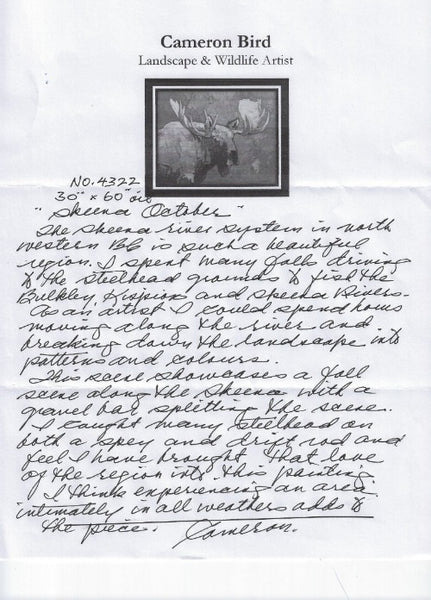 Cameron Bird
Landscape & Wildlife Artist
NO. 4322
30" x 60" oil
"Skeena October"
The Skeena river system in north
western BC is such a beautiful
region. I spent many falls driving
to the steelhead grounds to fish the
Bulkley, Kispiox and Skeena Rivers.
As an artist I could spend hours
moving along the river and
breaking down the landscape into
patterns and colours.
This scene showcases a fall
scene along the Skeena with a
gravel bar splitting the scene.
I caught many steelhead on
both a spey and drift rod and
feel I have brought that love
of the region into this painting
I think experiencing an area
intimately in all weathers adds to
the piece. Cameron.